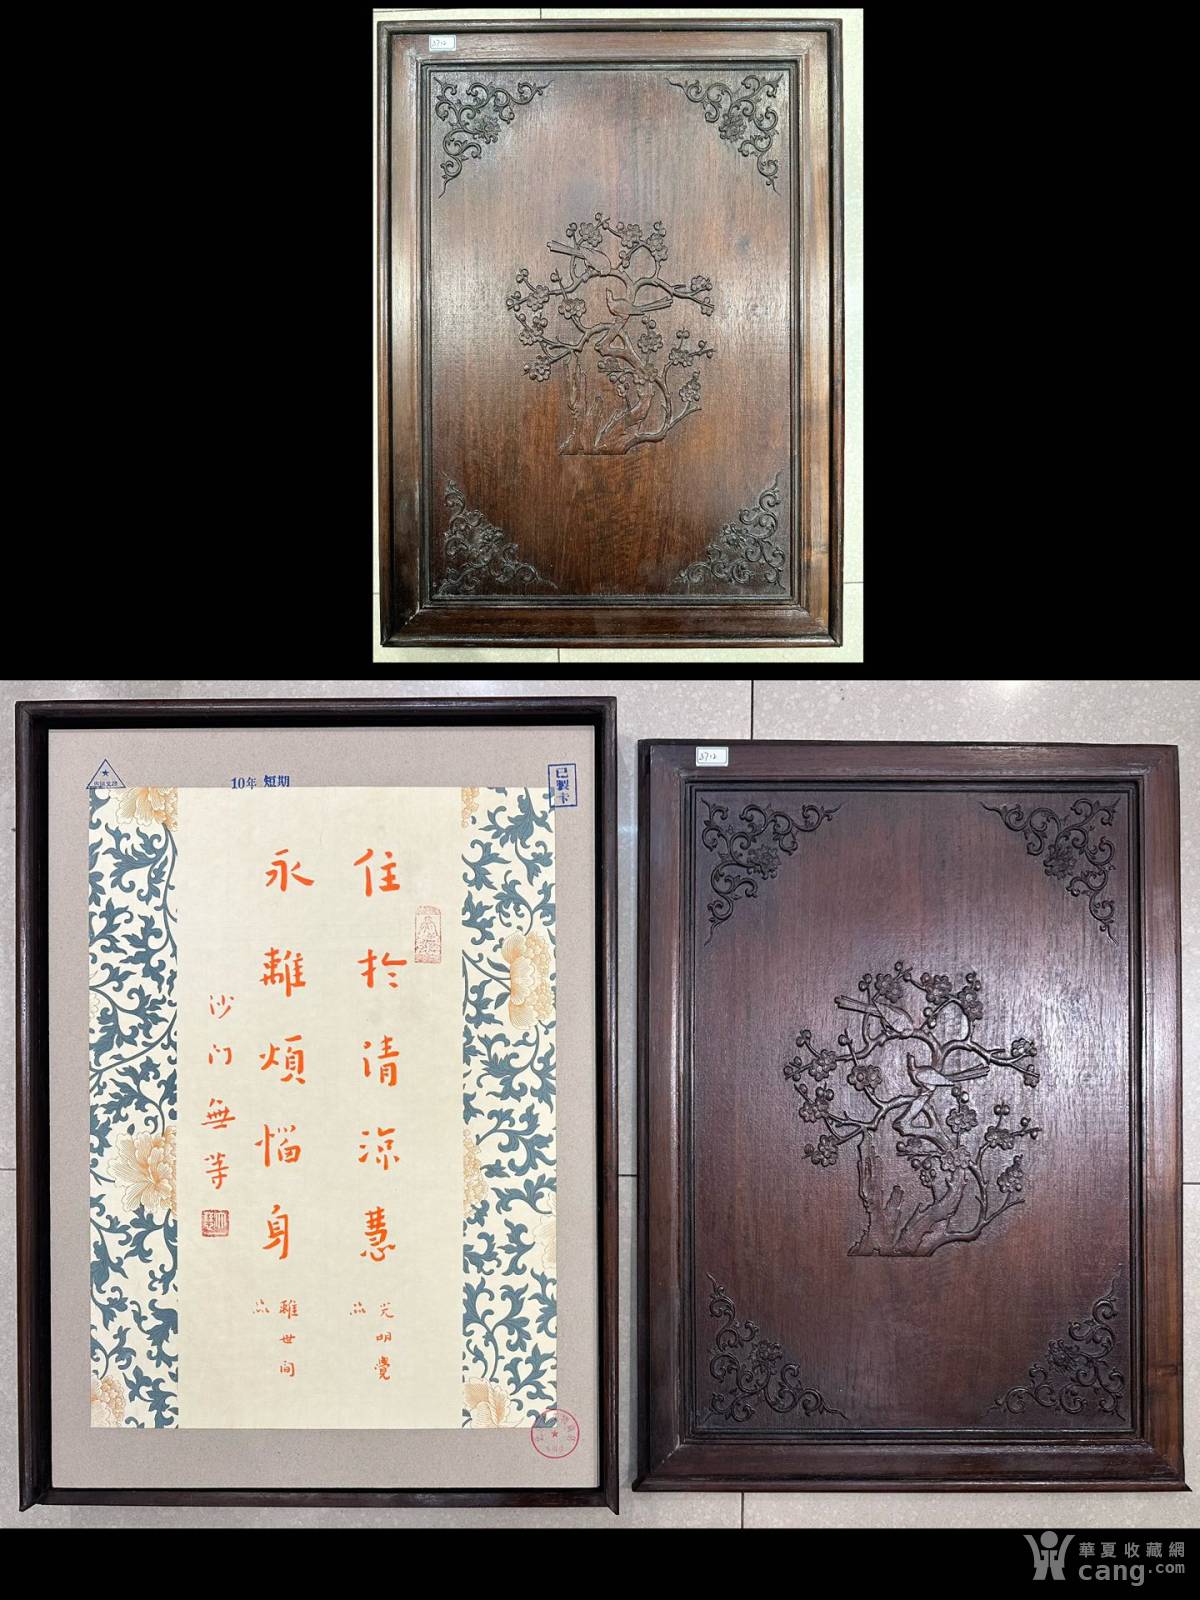 5712
10年 短期
已製卡
5712
住於清涼慧
光明覺
品
永離煩惱身
離世间
品
沙门無等
華夏收藏網
cang.com